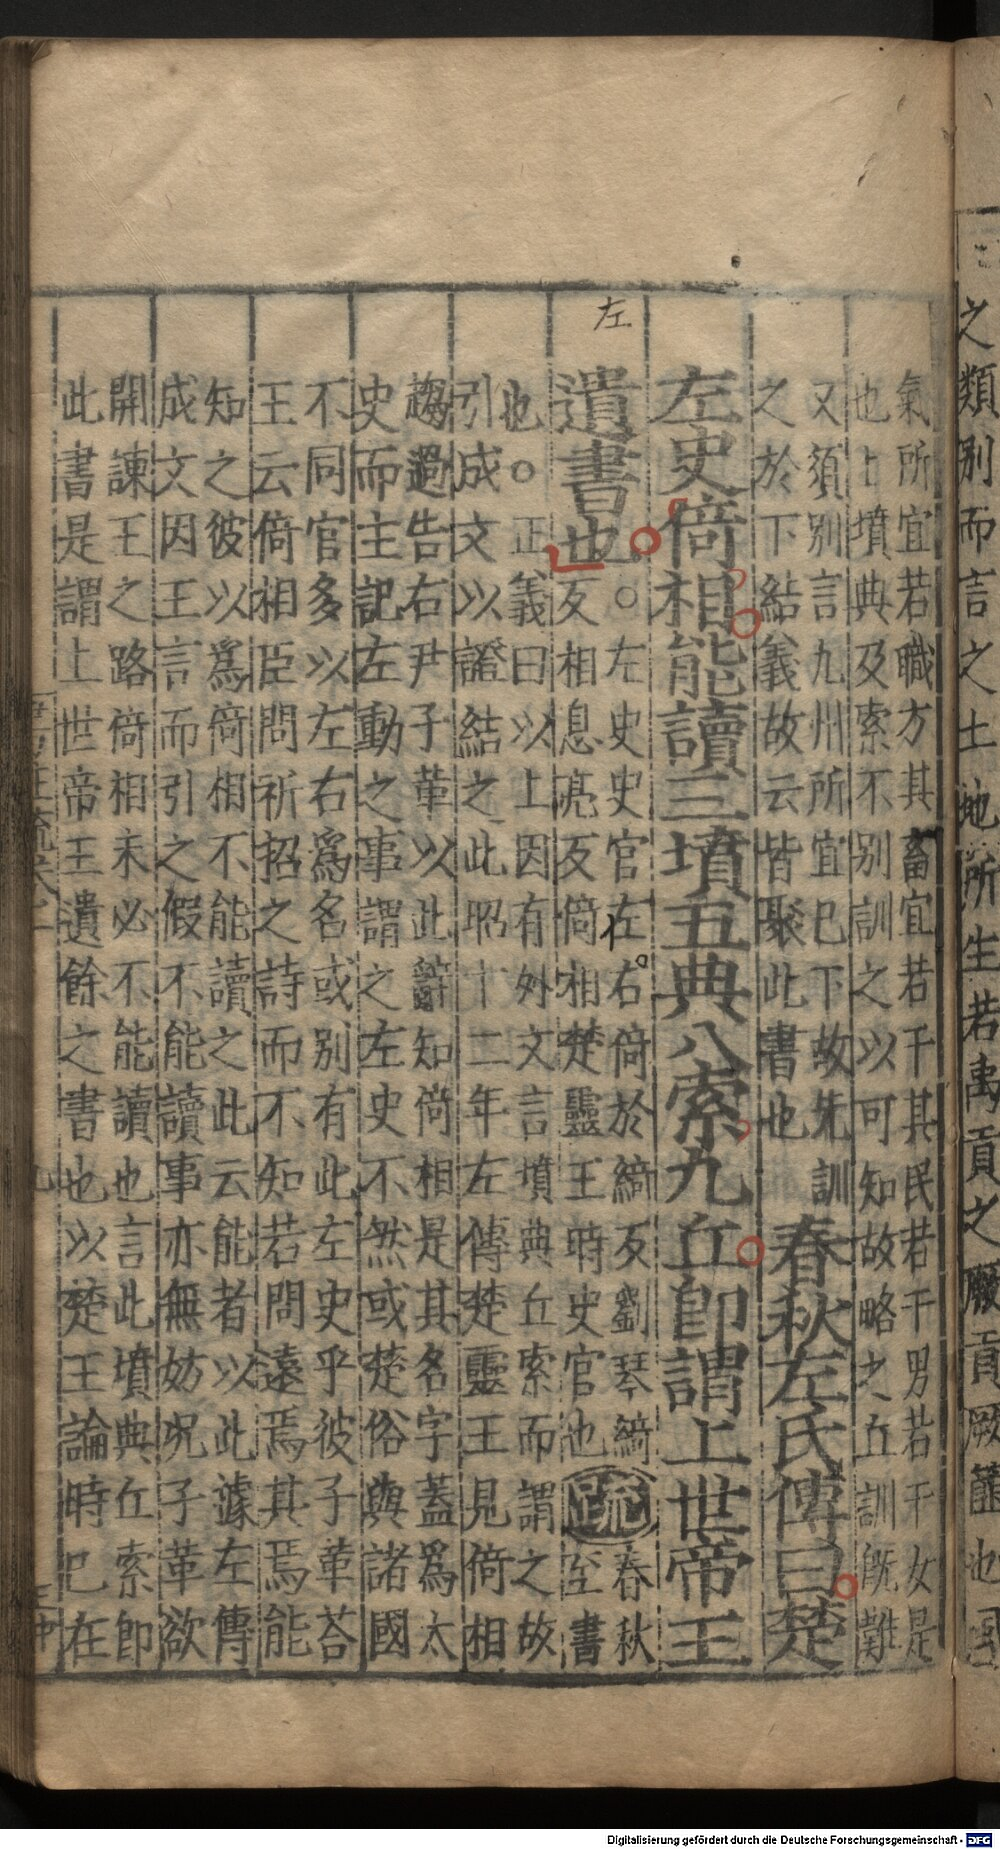 氣所宜若職方其畜宜若干其民若干男若干女是
也上墳典及索不別訓之以可知故略之丘訓旣難
又須別言九州所宜已下故先訓
之於下結義故云皆聚此書也
春秋左氏傳曰楚
左史倚相能讀三墳五典八索九丘卽謂上世帝王
左
遺書也
○左史史官左右倚於綺反劉琴綺
反相息亮反倚相楚靈王時史官也
疏
春秋
至書
也○正義曰以上因有外文言墳典丘索而謂之故
引成文以證結之此昭十二年左傳楚靈王見倚相
趨過告右尹子革以此辭知倚相是其名字蓋爲太
史而主記左動之事謂之左史不然或楚俗與諸國
不同官多以左右爲名或别有此左史乎彼子革荅
王云倚相臣問祈招之詩而不知若問遠焉其焉能
知之彼以爲倚相不能讀之此云能者以此據左傳
成文因王言而引之假不能讀事亦無妨况子革欲
開諫王之路倚相未必不能讀也言此墳典丘索卽
此書是謂上世帝王遺餘之書也以楚王論時已在
之類別而言之土地所生若禹貢之厥貢厥篚也
Digitalisierung gefördert durch die Deutsche Forschungsgemeinschaft - DFG